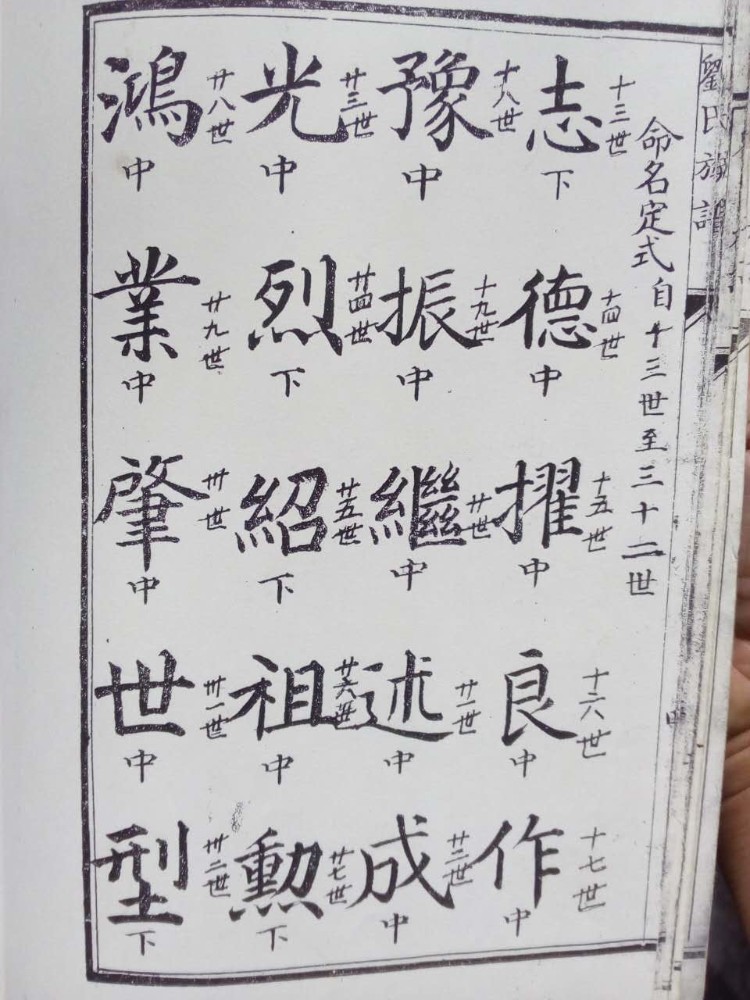 劉氏族譜
命名定式自十三世至三十二世
志 十三世 下
德 十四世 中
擢 十五世 中
良 十六世 中
作 十七世 中
豫 十八世 中
振 十九世 中
繼 廿世 中
述 廿一世 中
成 廿二世 中
光 廿三世 中
烈 廿四世 下
紹 廿五世 下
祖 廿六世 中
勳 廿七世 下
鴻 廿八世 中
業 廿九世 中
肇 卅世 中
世 卅一世 中
型 卅二世 下